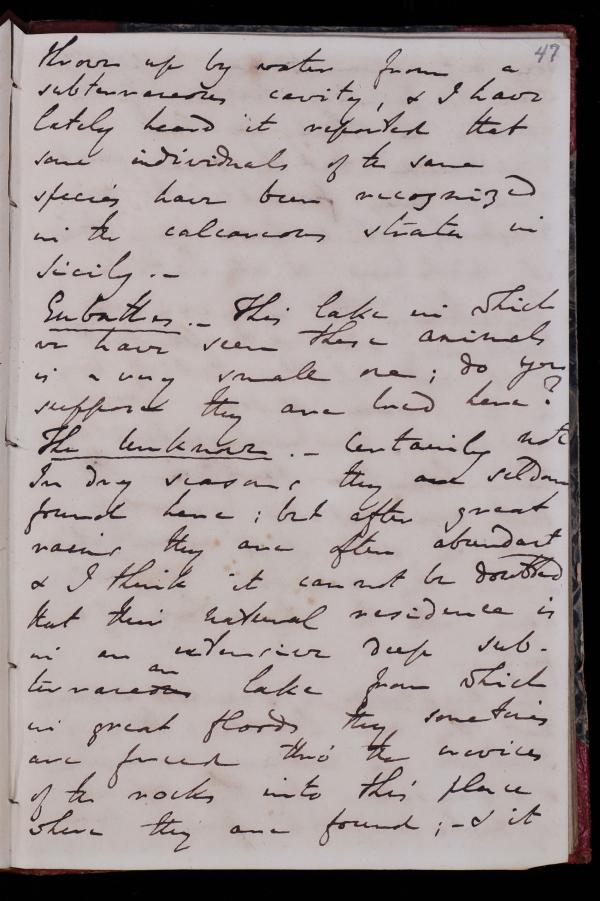 47
thrown up by water from a
subterraneous cavity, & I have
lately heard it reported that
some individuals of the same
species have been recognized
in the calcareous strata in
Sicily. –
Eubathes. – This lake in which
we have seen these animals
is a very small one; do you
suppose they are bred here?
The Unknown. – Certainly not
In dry seasons they are seldom
found here; but after great
rains they are often abundant
& I think it cannot be doubted
that their natural residence is
in an extensive deep sub-
an
terraneous lake from which
in great floods they sometimes
are forced thro' the crevices
of the rocks into this place
where they are found; – & it